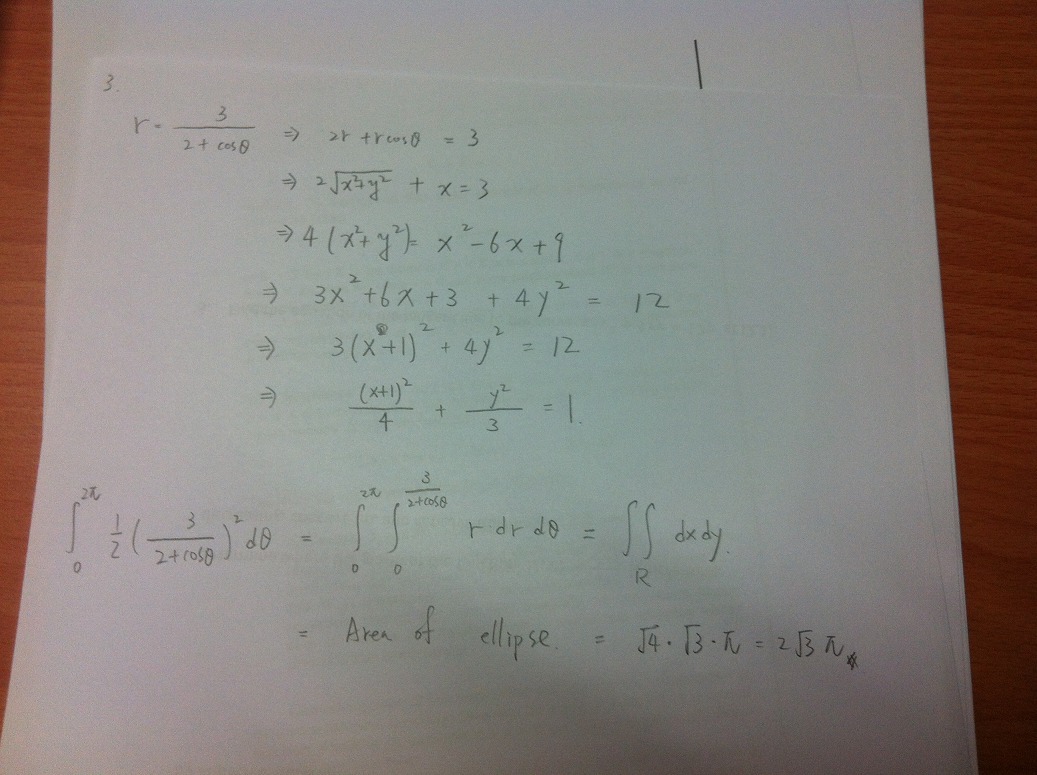 3.
r = 3/(2 + cosθ) ⇒ 2r + rcosθ = 3
⇒ 2√(x²+y²) + x = 3
⇒ 4(x²+y²) = x² - 6x + 9
⇒ 3x² + 6x + 3 + 4y² = 12
⇒ 3(x+1)² + 4y² = 12
⇒ (x+1)²/4 + y²/3 = 1.
∫₀^{2π} 1/2 (3/(2+cosθ))² dθ = ∫₀^{2π} ∫₀^{3/(2+cosθ)} r dr dθ = ∬_R dxdy.
= Area of ellipse. = √4 · √3 · π = 2√3 π